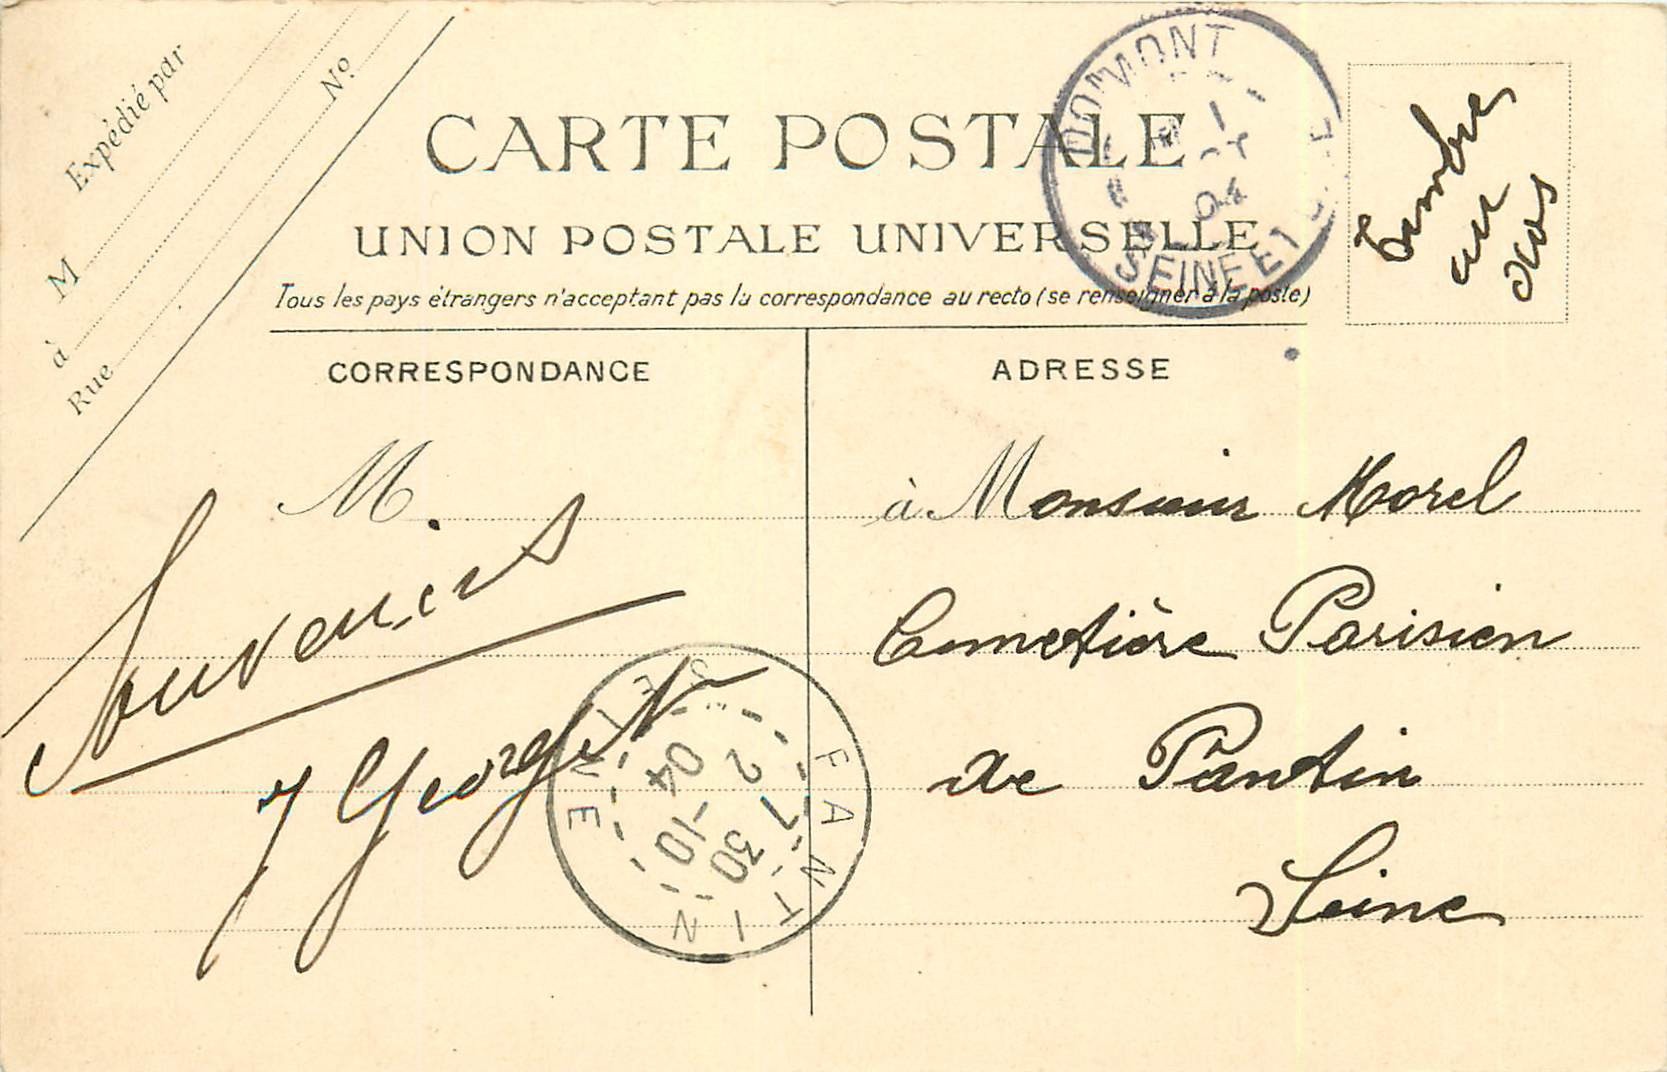 Expédié par
M
à
Rue
N°
CARTE POSTALE
UNION POSTALE UNIVERSELLE
Tous les pays étrangers n'acceptant pas la correspondance au recto (se renseigner à la poste)
DOMONT
1
04
SEINE ET
Timbre
au
dos
CORRESPONDANCE
ADRESSE
M
Souvenirs
Georget
à Monsieur Morel
Cimetière Parisien
de Pantin
Seine
PANTIN
SEINE
7 30
2 -10
04